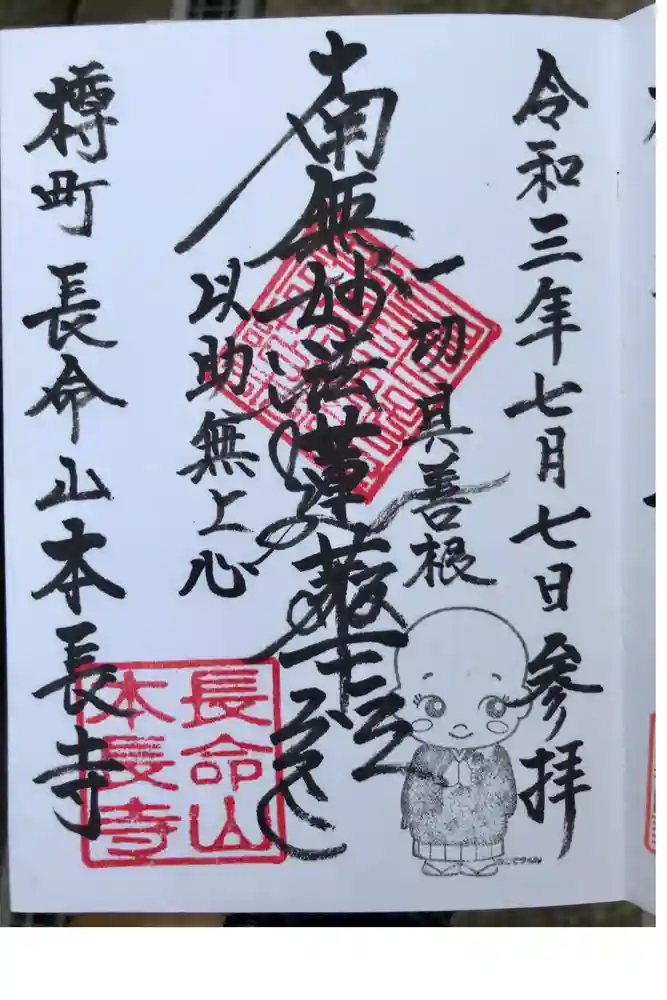 令和三年七月七日参拝
一切具善根
南無妙法蓮華経
以助無上心
樽町 長命山本長寺
長命山
本長寺